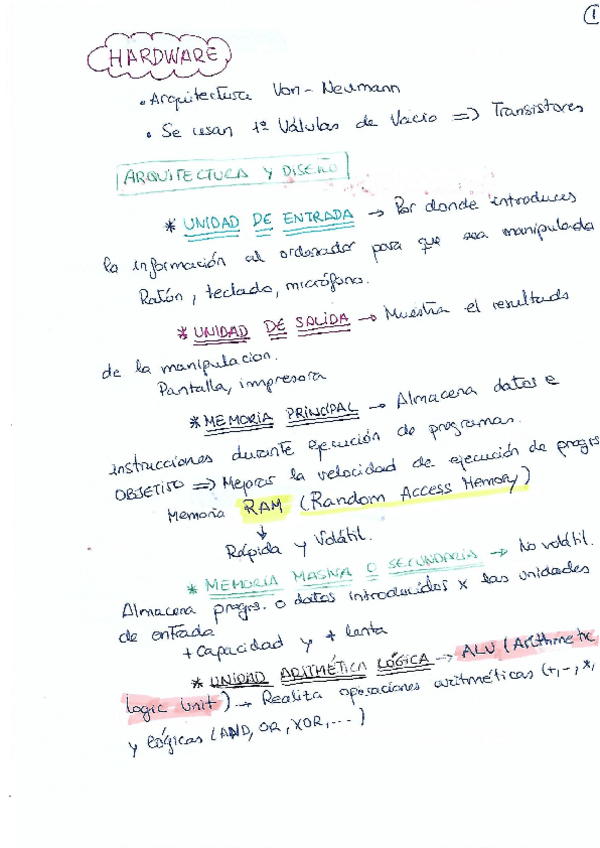 1
HARDWARE
• Arquitectura Von-Neumann
• Se usan 1º Válvulas de Vacío => Transistores
ARQUITECTURA Y DISEÑO
* UNIDAD DE ENTRADA → Por donde introduces
la información al ordenador para que sea manipulada
Ratón, teclado, micrófono.
* UNIDAD DE SALIDA → Muestra el resultado
de la manipulacion.
Pantalla, impresora
* MEMORIA PRINCIPAL → Almacena datos e
instrucciones durante ejecución de programas.
OBJETIVO => Mejorar la velocidad de ejecución de progrs
Memoria RAM (Random Access Memory)
↓
Rápida y Volátil.
* MEMORIA MASIVA O SECUNDARIA → No volátil.
Almacena progrs. o datos introducidos x las unidades
de entrada
+ Capacidad y + lenta
* UNIDAD ARITMÉTICA LÓGICA → ALU (Arithmetic
logic Unit) → Realiza operaciones aritméticas (+, -, *,
y lógicas (AND, OR, XOR, ...)